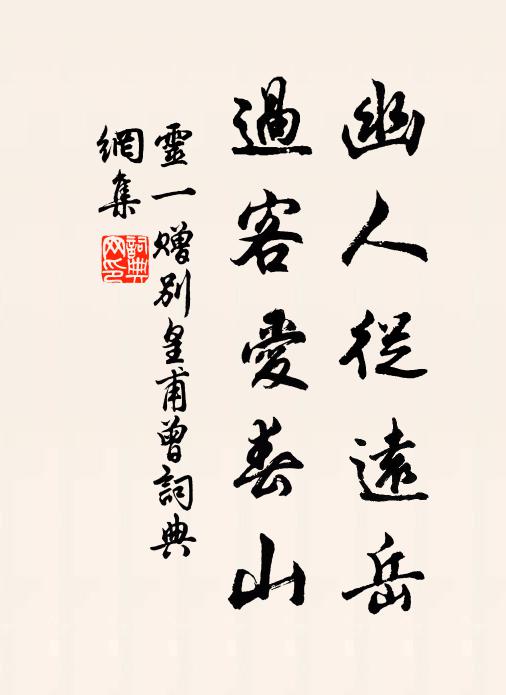 幽人從遠岳
過客愛春山
靈一贈別皇甫曾詞典
網集
詞典網印